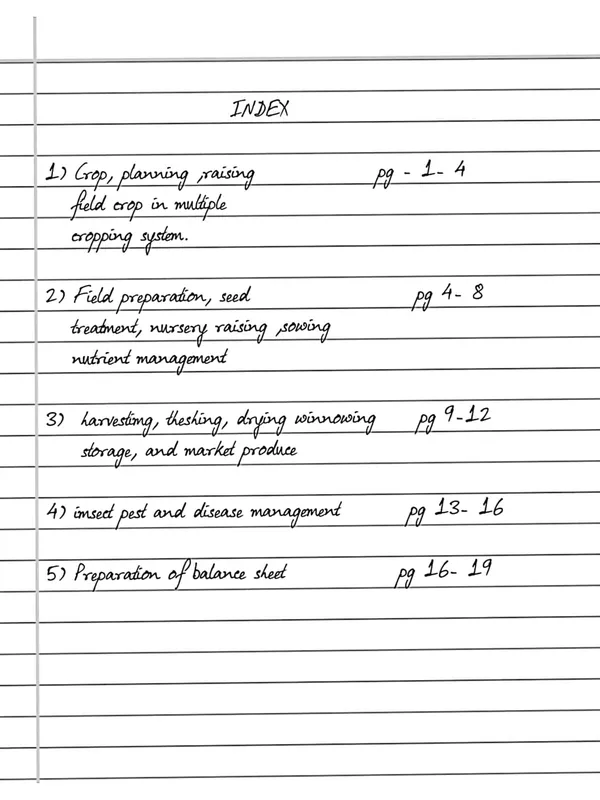 INDEX
1) Crop, planning ,raising pg - 1- 4
field crop in multiple
cropping system.
2) Field preparation, seed pg 4- 8
treatment, nursery raising ,sowing
nutrient management
3) harvesting, theshing, drying winnowing pg 9-12
storage, and market produce
4) imsect pest and disease management pg 13- 16
5) Preparation of balance sheet pg 16- 19